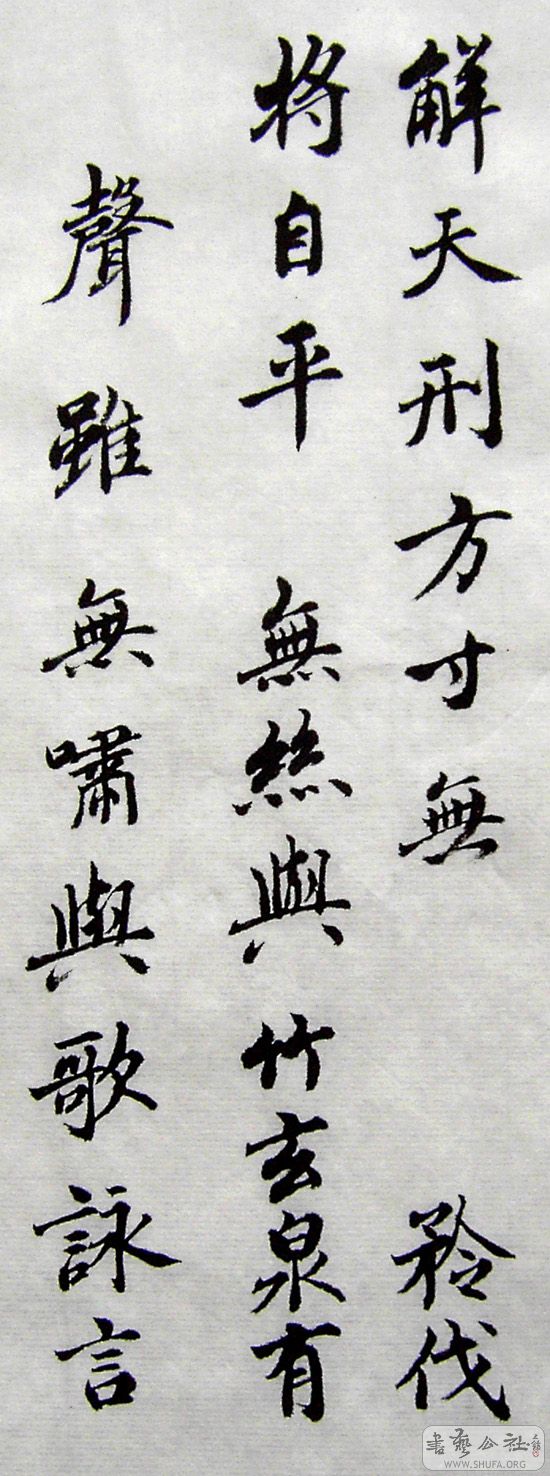 解天刑方寸無矜伐
将自平無絲與竹玄泉有
聲雖無嘯與歌詠言
書藝公社
WWW.SHUFA.ORG